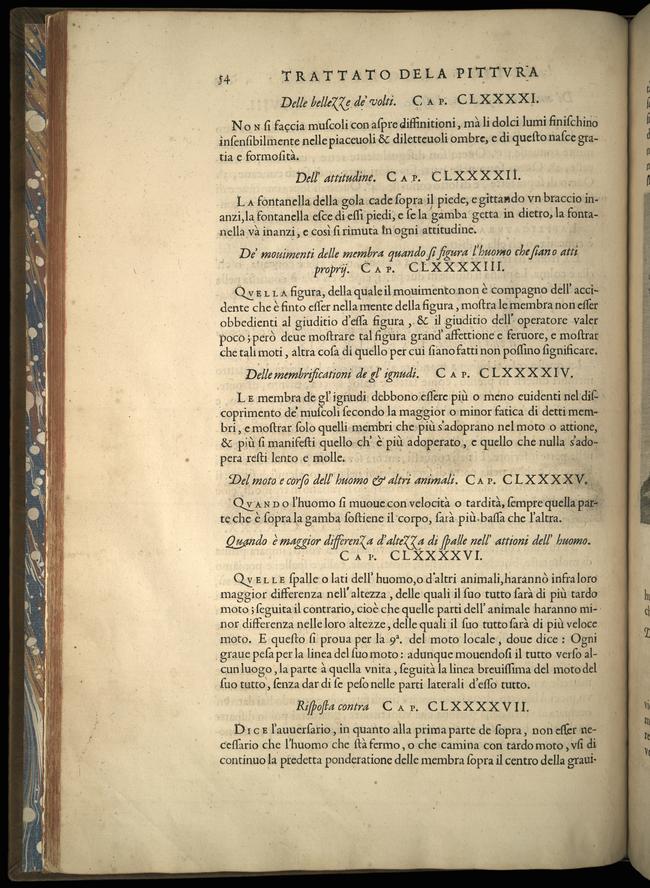 54 TRATTATO DELA PITTVRA
Delle bellezze de' volti. CAP. CLXXXXI.
NON ſi faccia muſcoli con aſpre diffinitioni, mà li dolci lumi finiſchino
inſenſibilmente nelle piaceuoli & diletteuoli ombre, e di queſto naſce gra-
tia e formoſità.
Dell' attitudine. CAP. CLXXXXII.
LA fontanella della gola cade ſopra il piede, e gittando vn braccio in-
anzi, la fontanella eſce di eſſi piedi, e ſe la gamba getta in dietro, la fonta-
nella và inanzi, e così ſi rimuta in ogni attitudine.
De' mouimenti delle membra quando ſi figura l'huomo che ſiano atti
proprij. CAP. CLXXXXIII.
QVELLA figura, della quale il mouimento non è compagno dell' acci-
dente che è finto eſſer nella mente della figura, moſtra le membra non eſſer
obbedienti al giuditio d'eſſa figura, & il giuditio dell' operatore valer
poco; però deue moſtrare tal figura grand' affettione e feruore, e moſtrar
che tali moti, altra coſa di quello per cui ſiano fatti non poſſino ſignificare.
Delle membrificationi de gl' ignudi. CAP. CLXXXXIV.
LE membra de gl' ignudi debbono eſſere più o meno euidenti nel diſ-
coprimento de' muſcoli ſecondo la maggior o minor fatica di detti mem-
bri, e moſtrar ſolo quelli membri che più s'adoprano nel moto o attione,
& più ſi manifeſti quello ch' è più adoperato, e quello che nulla s'ado-
pera reſti lento e molle.
Del moto e corſo dell' huomo & altri animali. CAP. CLXXXXV.
QVANDO l'huomo ſi muoue con velocità o tardità, ſempre quella par-
te che è ſopra la gamba ſoſtiene il corpo, ſarà più baſſa che l'altra.
Quando è maggior differenza d'altezza di ſpalle nell' attioni dell' huomo.
CAP. CLXXXXVI.
QVELLE ſpalle o lati dell' huomo, o d'altri animali, harannò infra loro
maggior differenza nell' altezza, delle quali il ſuo tutto ſarà di più tardo
moto; ſeguita il contrario, cioè che quelle parti dell' animale haranno mi-
nor differenza nelle loro altezze, delle quali il ſuo tutto ſarà di più veloce
moto. E queſto ſi proua per la 9ª. del moto locale, doue dice: Ogni
graue peſa per la linea del ſuo moto: adunque mouendoſi il tutto verſo al-
cun luogo, la parte à quella vnita, ſeguità la linea breuiſſima del moto del
ſuo tutto, ſenza dar di ſe peſo nelle parti laterali d'eſſo tutto.
Riſpoſta contra CAP. CLXXXXVII.
DICE l'auuerſario, in quanto alla prima parte de ſopra, non eſſer ne-
ceſſario che l'huomo che ſtà fermo, o che camina con tardo moto, vſi di
continuo la predetta ponderatione delle membra ſopra il centro della graui-